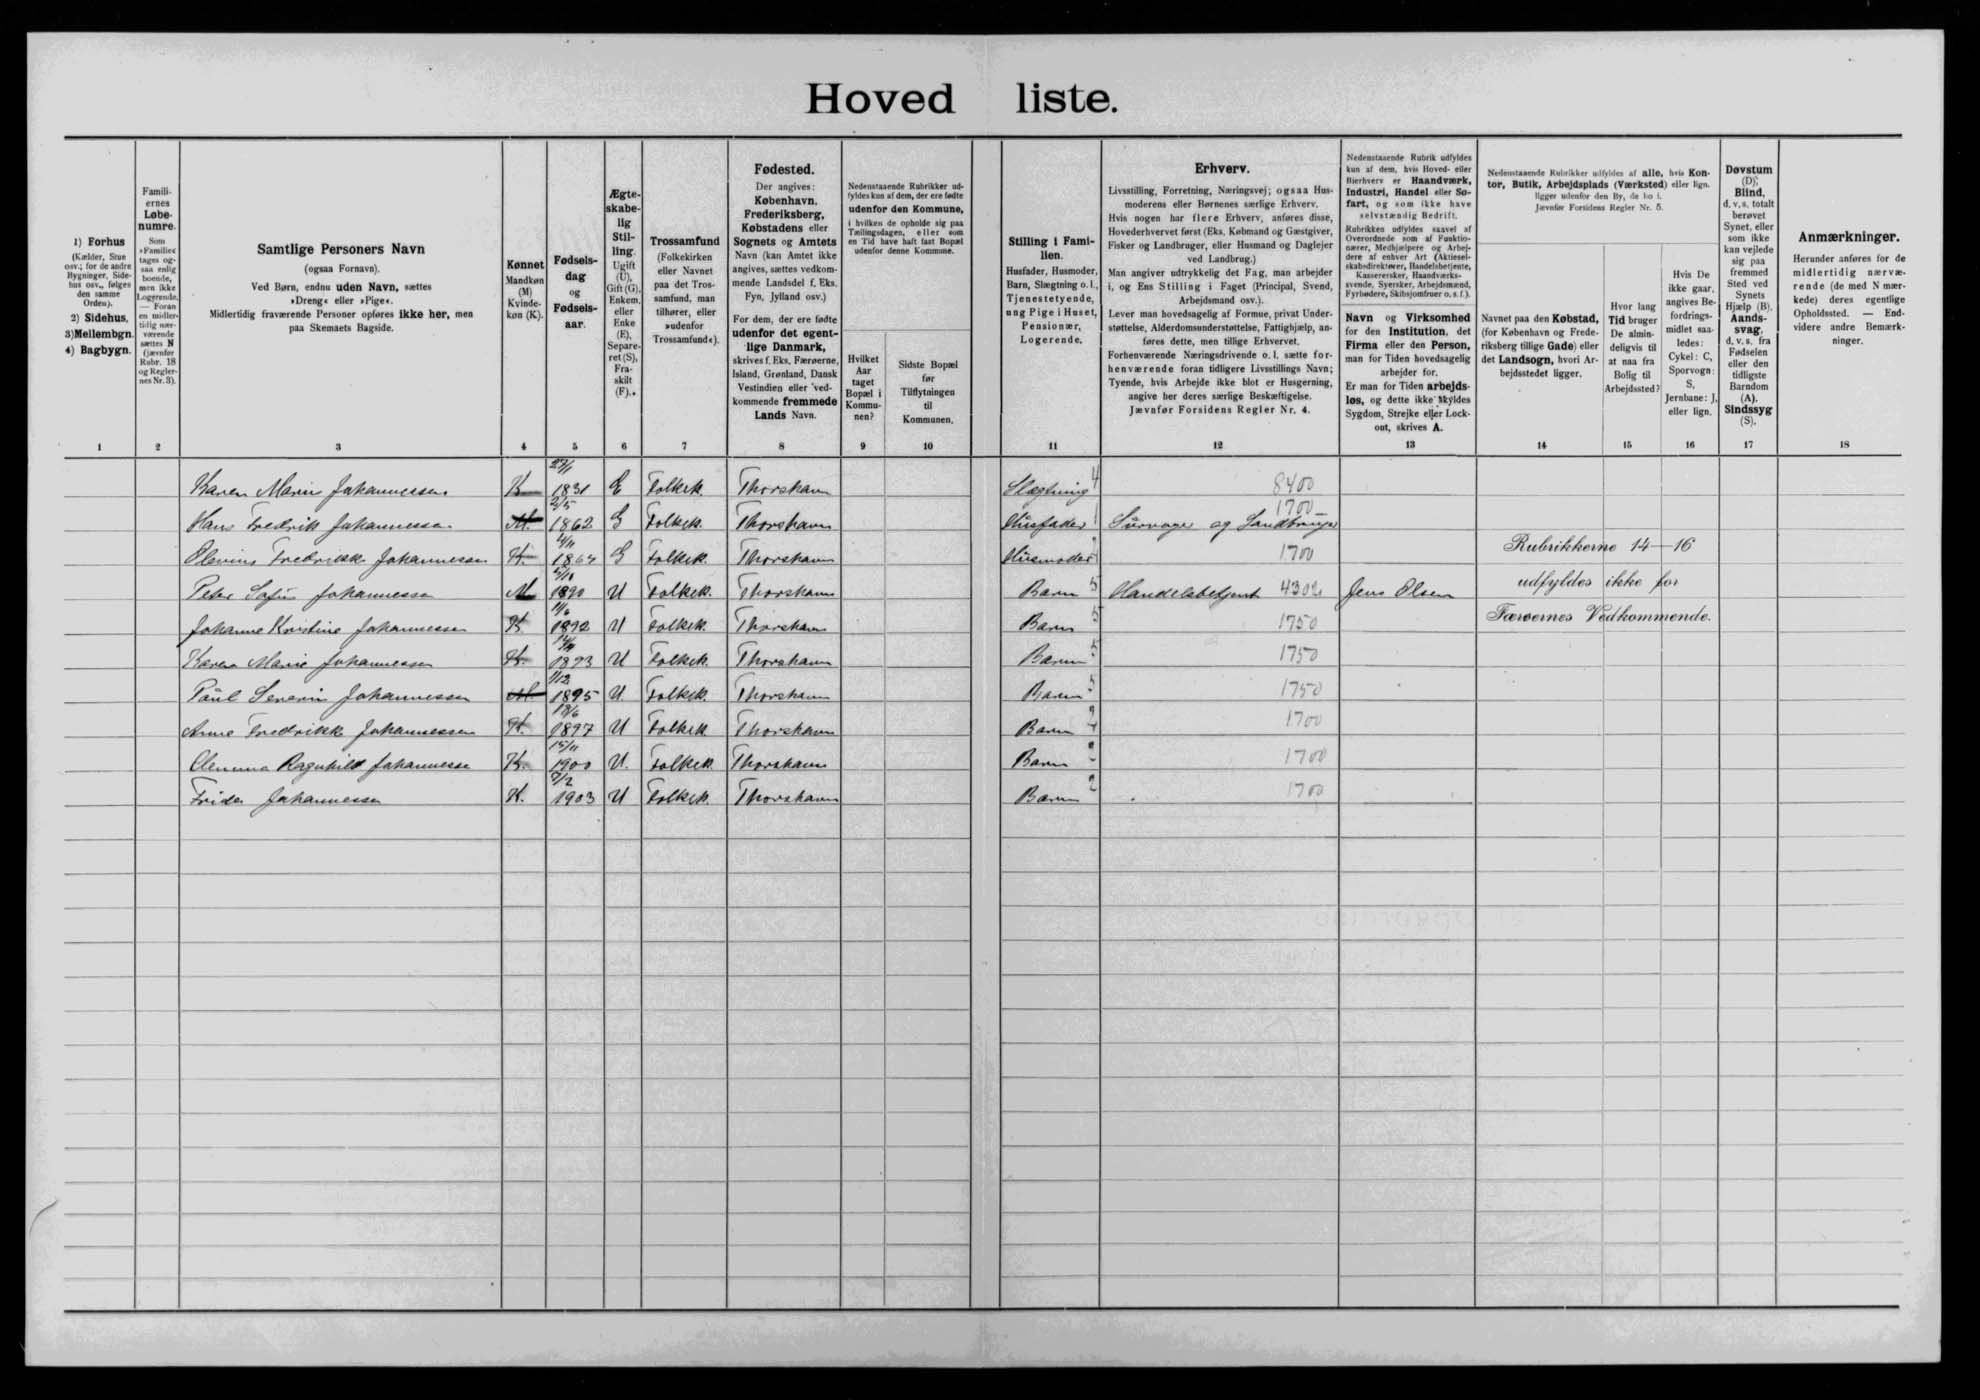 Hovedliste.
1) Forhus
(Kælder, Stue
osv.; for de andre
Bygninger, Side-
hus osv., følges
den samme
Orden).
2) Sidehus,
3) Mellembgn.
4) Bagbygn.
1
Famili-
ernes
Løbe-
numre.
Som
»Familie«
tages og-
saa enlig
boende,
men ikke
Logerende.
— Foran
en midler-
tidig nær-
værende
sættes N
(jævnfør
Rubr. 18
og Regler-
nes Nr. 3).
2
Samtlige Personers Navn
(ogsaa Fornavn).
Ved Børn, endnu uden Navn, sættes
»Dreng« eller »Pige«.
Midlertidig fraværende Personer opføres ikke her, men
paa Skemaets Bagside.
3
Kønnet
Mandkøn
(M)
Kvinde-
køn (K).
4
Fødsels-
dag
og
Fødsels-
aar.
5
Ægte-
skabe-
lig
Stil-
ling.
Ugift
(U),
Gift (G),
Enkem.
eller
Enke
(E),
Separe-
ret (S),
Fra-
skilt
(F).
6
Trossamfund
(Folkekirken
eller Navnet
paa det Tros-
samfund, man
tilhører, eller
»udenfor
Trossamfund«).
7
Fødested.
Der angives:
København,
Frederiksberg,
Købstadens eller
Sognets og Amtets
Navn (kan Amtet ikke
angives, sættes vedkom-
mende Landsdel f. Eks.
Fyn, Jylland osv.)
For dem, der ere fødte
udenfor det egent-
lige Danmark,
skrives f. Eks, Færøerne,
Island, Grønland, Dansk
Vestindien eller ved-
kommende fremmede
Lands Navn.
8
Nedenstaaende Rubrikker ud-
fyldes kun af dem, der ere fødte
udenfor den Kommune,
i hvilken de opholde sig paa
Tællingsdagen, eller som
en Tid have haft fast Bopæl
udenfor denne Kommune.
Hvilket
Aar
taget
Bopæl i
Kommu-
nen?
9
Sidste Bopæl
før
Tilflytningen
til
Kommunen.
10
Stilling i Fami-
lien.
Husfader, Husmoder,
Barn, Slægtning o. l.,
Tjenestetyende,
ung Pige i Huset,
Pensionær,
Logerende.
11
Erhverv.
Livsstilling, Forretning, Næringsvej; ogsaa Hus-
moderens eller Børnenes særlige Erhverv.
Hvis nogen har flere Erhverv, anføres disse,
Hovederhvervet først (Eks, Købmand og Gæstgiver,
Fisker og Landbruger, eller Husmand og Daglejer
ved Landbrug.)
Man angiver udtrykkelig det Fag, man arbejder
i, og Ens Stilling i Faget (Principal, Svend,
Arbejdsmand osv.).
Lever man hovedsagelig af Formue, privat Under-
støttelse, Alderdomsunderstøttelse, Fattighjælp, an-
føres dette, men tillige Erhvervet.
Forhenværende Næringsdrivende o. l. sætte for-
henværende foran tidligere Livsstillings Navn;
Tyende, hvis Arbejde ikke blot er Husgerning,
angive her deres særlige Beskæftigelse.
Jævnfør Forsidens Regler Nr. 4.
12
Nedenstaaende Rubrik udfyldes
kun af dem, hvis Hoved- eller
Bierhverv er Haandværk,
Industri, Handel eller Sø-
fart, og som ikke have
selvstændig Bedrift.
Rubrikken udfyldes saavel af
Overordnede som af Funktio-
nærer, Medhjælpere og Arbej-
dere af enhver Art (Aktiesel-
skabsdirektører, Handelsbetjente,
Kassererskor, Haandværks-
svende, Syersker, Arbejdsmænd,
Fyrbødere, Skibsjomfruer o. s. f.).
Navn og Virksomhed
for den Institution, det
Firma eller den Person,
man for Tiden hovedsagelig
arbejder for.
Er man for Tiden arbejds-
løs, og dette ikke skyldes
Sygdom, Strejke eller Lock-
out, skrives A.
13
Nedenstaaende Rubrikker udfyldes af alle, hvis Kon-
tor, Butik, Arbejdsplads (Værksted) eller lign.
ligger udenfor den By, de bo i.
Jævnfør Forsidens Regler Nr. 5.
Navnet paa den Købstad,
(for København og Frede-
riksberg tillige Gade) eller
det Landsogn, hvori Ar-
bejdsstedet ligger.
14
Hvor lang
Tid bruger
De almin-
deligvis til
at naa fra
Bolig til
Arbejdssted?
15
Hvis De
ikke gaar,
angives Be-
fordrings-
midlet saa-
ledes:
Cykel: C,
Sporvogn:
S,
Jernbane: J,
eller lign.
16
Døvstum
(D);
Blind,
d. v. s. totalt
berøvet
Synet, eller
som ikke
kan vejlede
sig paa
fremmed
Sted ved
Synets
Hjælp (B).
Aands-
svag,
d. v. s. fra
Fødselen
eller den
tidligste
Barndom
(A).
Sindssyg
(S).
17
Anmærkninger.
Herunder anføres for de
midlertidig nærvæ-
rende (de med N mær-
kede) deres egentlige
Opholdssted. — End-
videre andre Bemærk-
ninger.
18
Karen Marie Johannessen K 27/1 1831 E Folkek. Thorshavn Slægtning 4 8400
Hans Fredrik Johannessen M. 2/5 1862 G Folkek. Thorshavn Husfader 1 og Landbruger 1700
Fredrikke Johannessen K. 1864 G Folkek. Thorshavn Husmoder 1700
Peter Sofus Johannessen M 1890 U Folkek. Thorshavn Barn 5 Handelsbetjent 4302 Jens Olsen
Johanne Kristine Johannessen K. 1892 U Folkek. Thorshavn Barn 5 1750
Karen Marie Johannessen K. 1893 U Folkek. Thorshavn Barn 5 1750
Paul Severin Johannessen M. 1/12 1895 U. Folkek. Thorshavn Barn 5 1750
Anne Fredrikke Johannessen K. 19/6 1897 U Folkek. Thorshavn Barn 2 1700
Ragnhild Johannesse K. 15/11 1900 U. Folkek. Thorshavn Barn 2 1700
Frida Johannessen K. 7/2 1903 U Folkek. Thorshavn Barn 2 1700
Rubrikkerne 14—16
udfyldes ikke for
Færøernes Vedkommende.